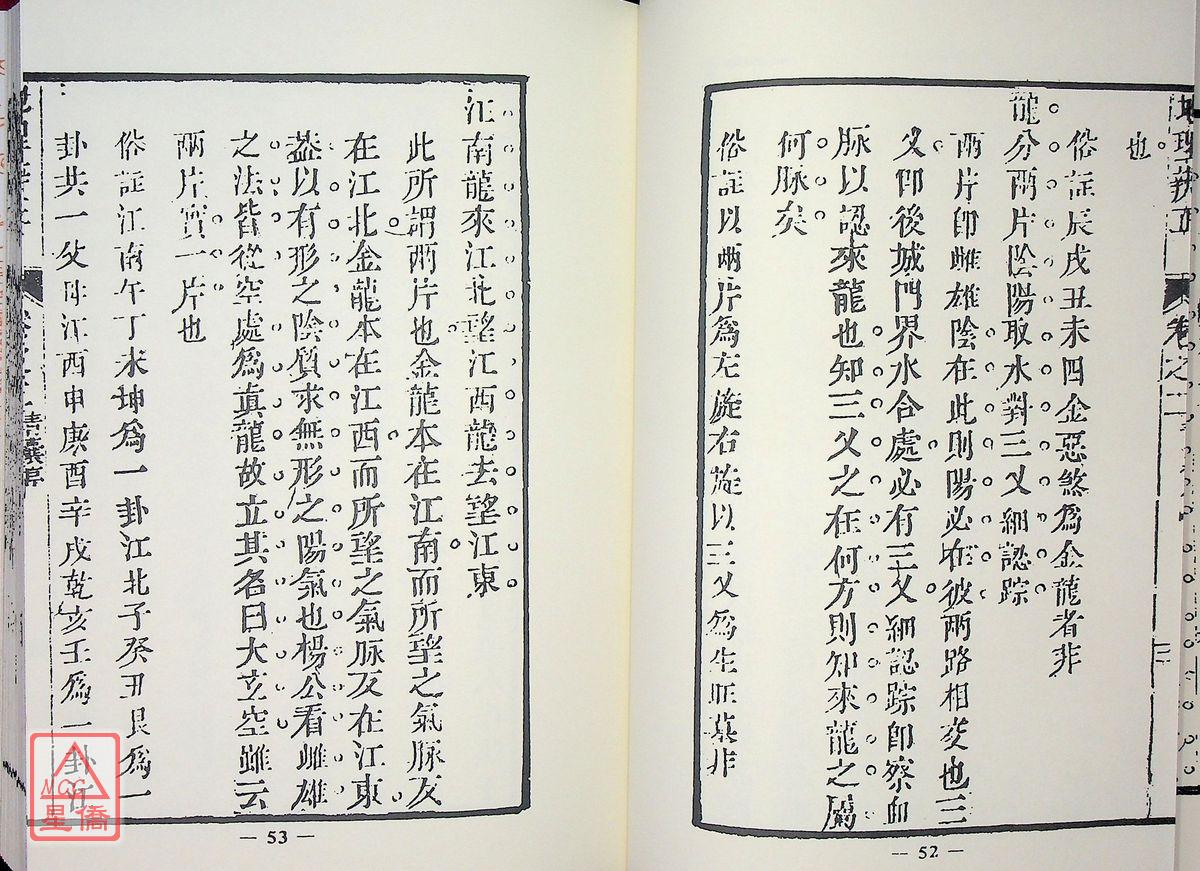 卷之二
也
俗註辰戌丑未四金惡煞為金龍者非
龍分兩片陰陽取水對三乂細認踪
兩片卽雌雄陰在此則陽必在彼兩路相交也三
乂卽後城門界水合處必有三乂細認踪卽察血
脉以認來龍也知三乂之在何方則知來龍之屬
何脉矣
俗註以兩片為左旋右旋以三乂為生旺墓非
— 52 —
江南龍來江北望江西龍去望江東
此所謂兩片也金龍本在江南而所望之氣脉反
在江北金龍本在江西而所望之氣脉反在江東
葢以有形之陰質求無形之陽氣也楊公看雌雄
之法皆從空處為眞龍故立其名曰大玄空雖云
兩片實一片也
俗註江南午丁未坤為一卦江北子癸丑艮為一
卦共一父母江西申庚酉辛戌乾亥壬為一卦江
— 53 —
星僑